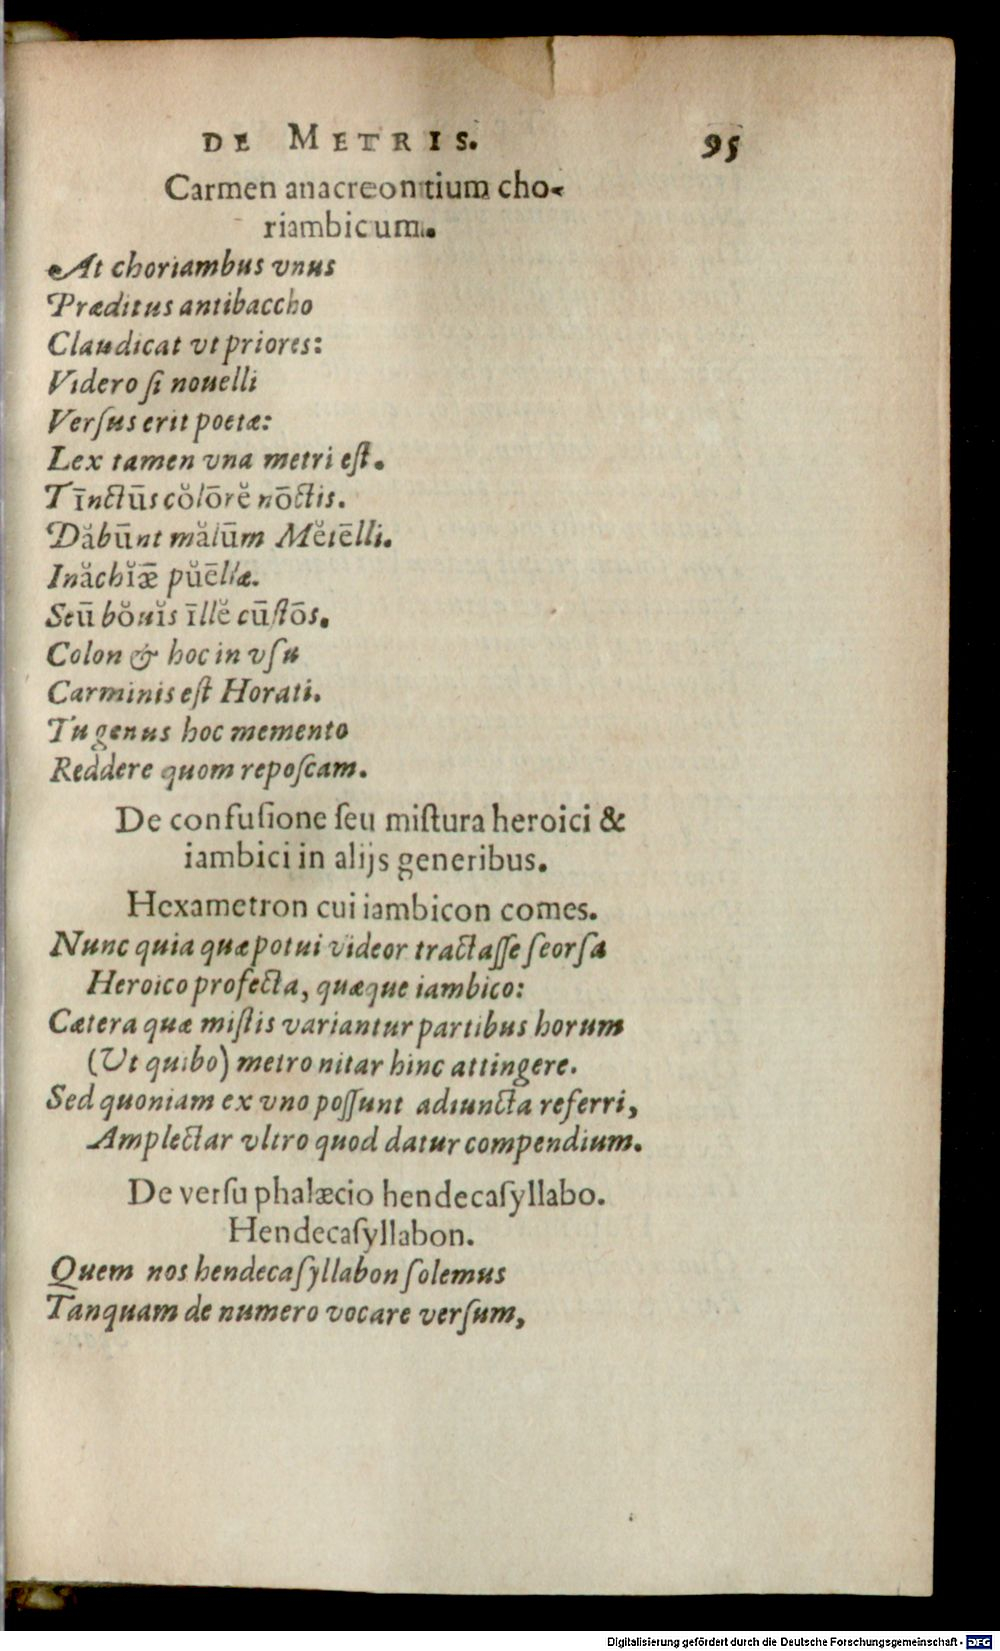 DE METRIS. 95
Carmen anacreontium cho-
riambicum.
At choriambus vnus
Præditus antibaccho
Claudicat vt priores:
Videro ſi nouelli
Verſus erit poetæ:
Lex tamen vna metri eſt.
Tīnctūs cŏlōrĕ nōctis.
Dăbūnt mălūm Mĕtēlli.
Ināchĭǣ pŭēllæ.
Seū bŏnĭs īllĕ cūſtōs.
Colon & hoc in vſu
Carminis eſt Horati.
Tu genus hoc memento
Reddere quom repoſcam.
De confuſione ſeu miſtura heroici &
iambici in alijs generibus.
Hexametron cui iambicon comes.
Nunc quia quæ potui videor tractaſſe ſeorſa
Heroico profecta, quæque iambico:
Cætera quæ miſtis variantur partibus horum
(Ut quibo) metro nitar hinc attingere.
Sed quoniam ex vno poſſunt adiuncta referri,
Amplectar vltro quod datur compendium.
De verſu phalæcio hendecaſyllabo.
Hendecaſyllabon.
Quem nos hendecaſyllabon ſolemus
Tanquam de numero vocare verſum,
Digitalisierung gefördert durch die Deutsche Forschungsgemeinschaft - DFG